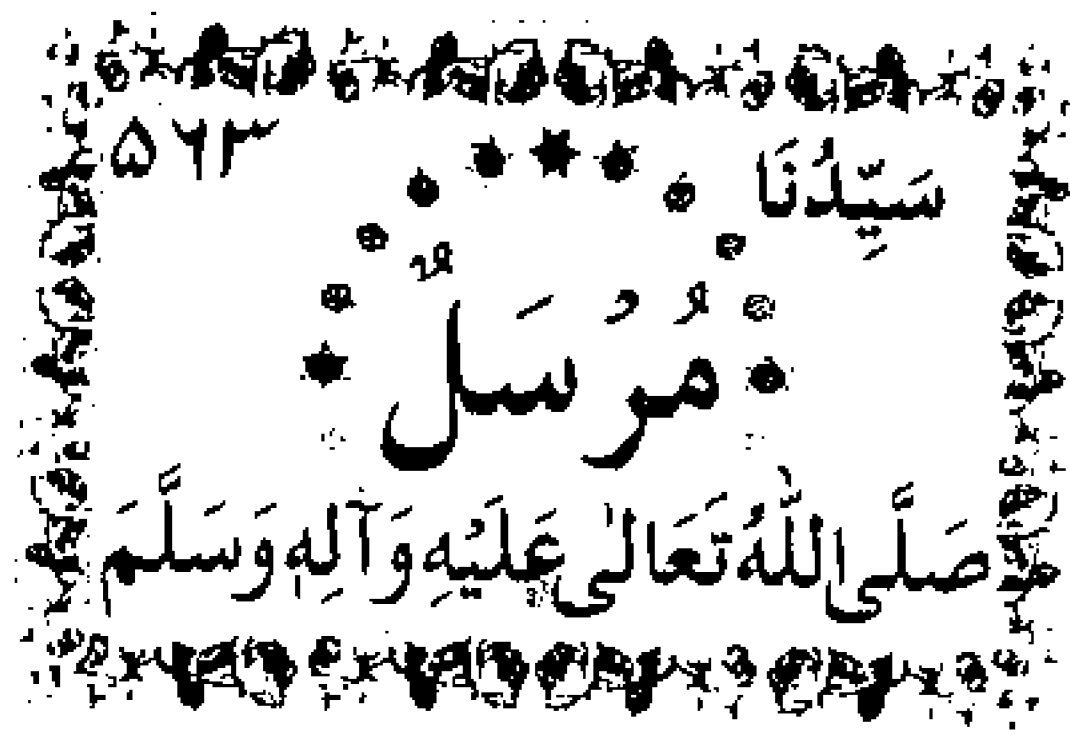 سَيِّدُنَا ۵۶۳
مُرْسَلٌ
صَلَّى اللّٰهُ تَعَالٰى عَلَيْهِ وَآلِهِ وَسَلَّمَ